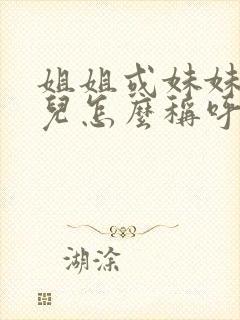 姐姐或妹妹
兒怎麼稱呼
湖涂